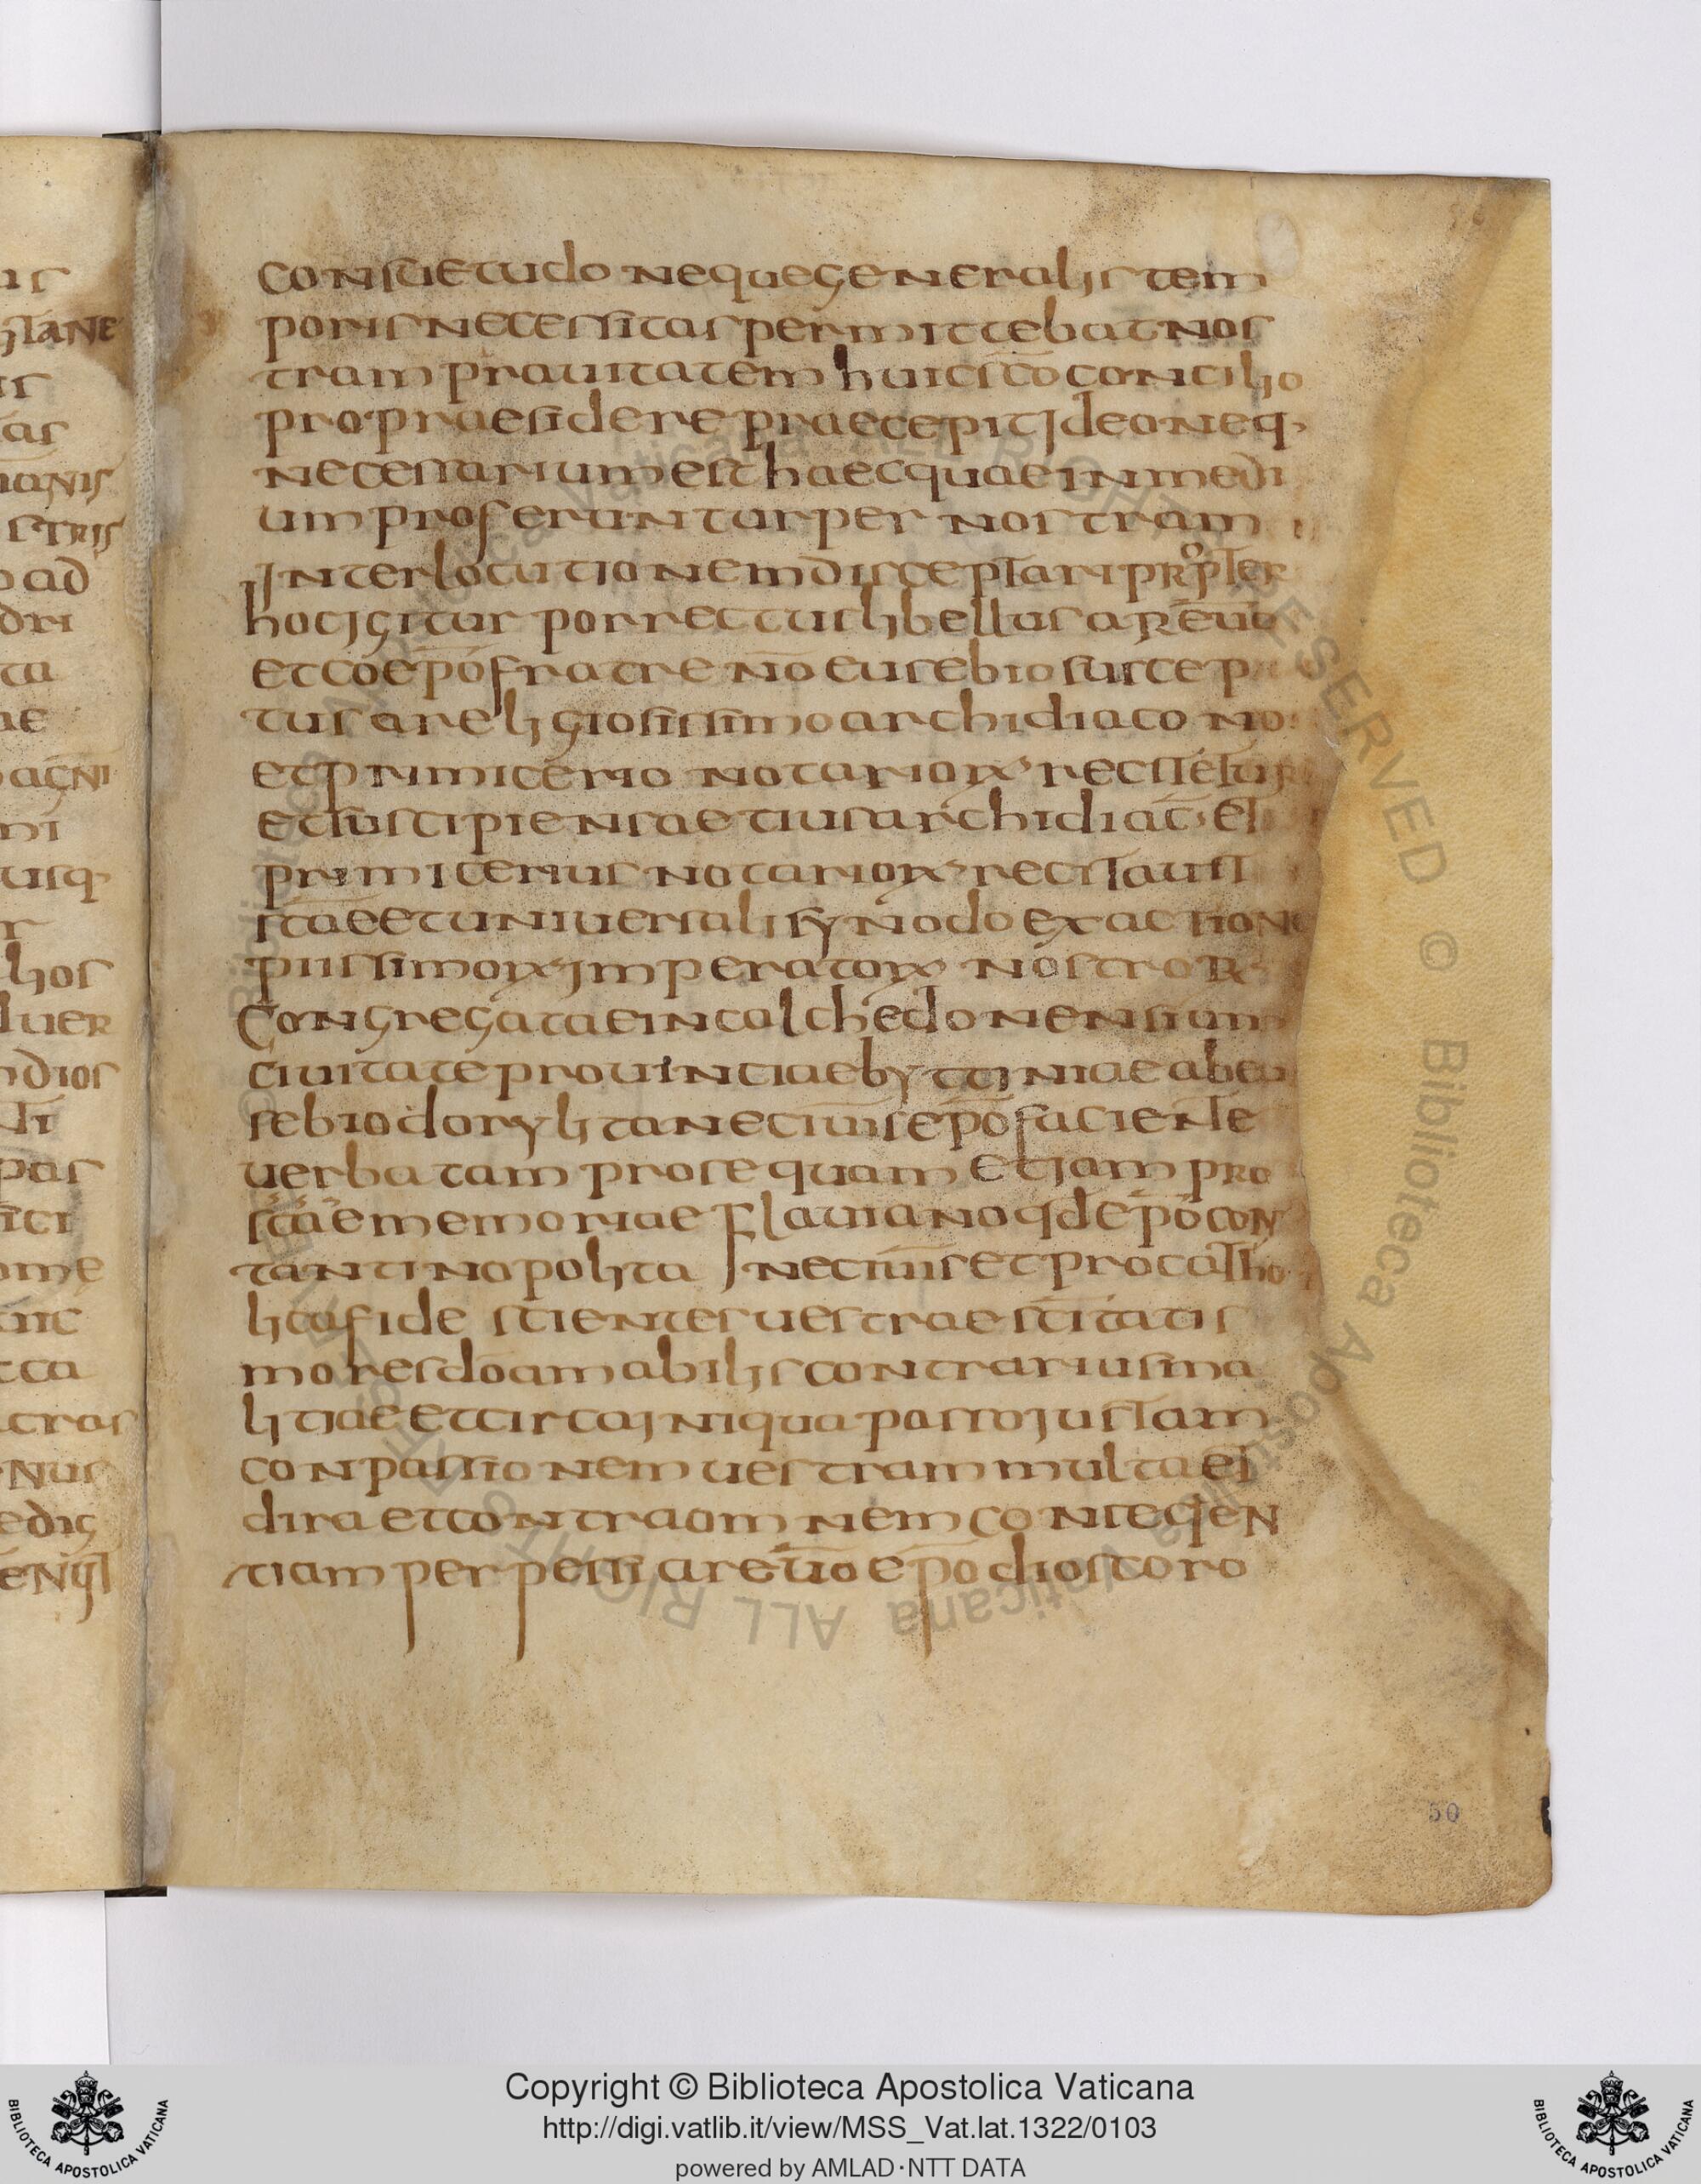 consuetudo neque generalis tem
poris necessitas permittebat nos
tram prauitatem huic sc̄o concilio
pro praesidere praecepit ideo neq·
necessarium est haec quae in medi
um proferuntur per nostram
interlocutionem disceptari prop̄ter
hoc igitur porrectus libellus a reuō
et coep̄o fratre nō eusebio suscep
tus a religiosissimo archidiacono
et primicerio notarioꝝ recitetur
et suscipiens aetius archidiac̄· et
primicerius notarioꝝ recitauit
sc̄ae et uniuersali synodo ex actione
piissimoꝝ imperatoꝝ nostroꝝ
congregatae in calchedonensium
ciuitate prouinciae byttiniae ab eu
sebio dorylitane ciuīs ep̄o faciente
uerba tam pro se quam etiam pro
sc̄ae memoriae flauiano qd̄ ep̄o con
tantinopolita ne ciuīs et pro catho
lica fide scientes uestrae sc̄itatis
mores dō amabilis contrarius ma
litiae et circa iniqua passo iustam
conpassionem uestram multa et
dira et contra omnem conseqen
tiam perpessi a reuō ep̄o dioscoro
50
is
lane
is
as
ianis
stris
o ad
dri
ta
ae
agni
ni
usq·
r
lios
luer
dios
pas
ici
ome
ta
tras
nus
edig
Copyright © Biblioteca Apostolica Vaticana
http://digi.vatlib.it/view/MSS_Vat.lat.1322/0103
powered by AMLAD·NTT DATA
BIBLIOTECA APOSTOLICA VATICANA
BIBLIOTECA APOSTOLICA VATICANA
© Biblioteca Apostolica Vaticana ALL RIGHTS RESERVED © Biblioteca Apostolica Vaticana ALL RIGHTS RESERVED